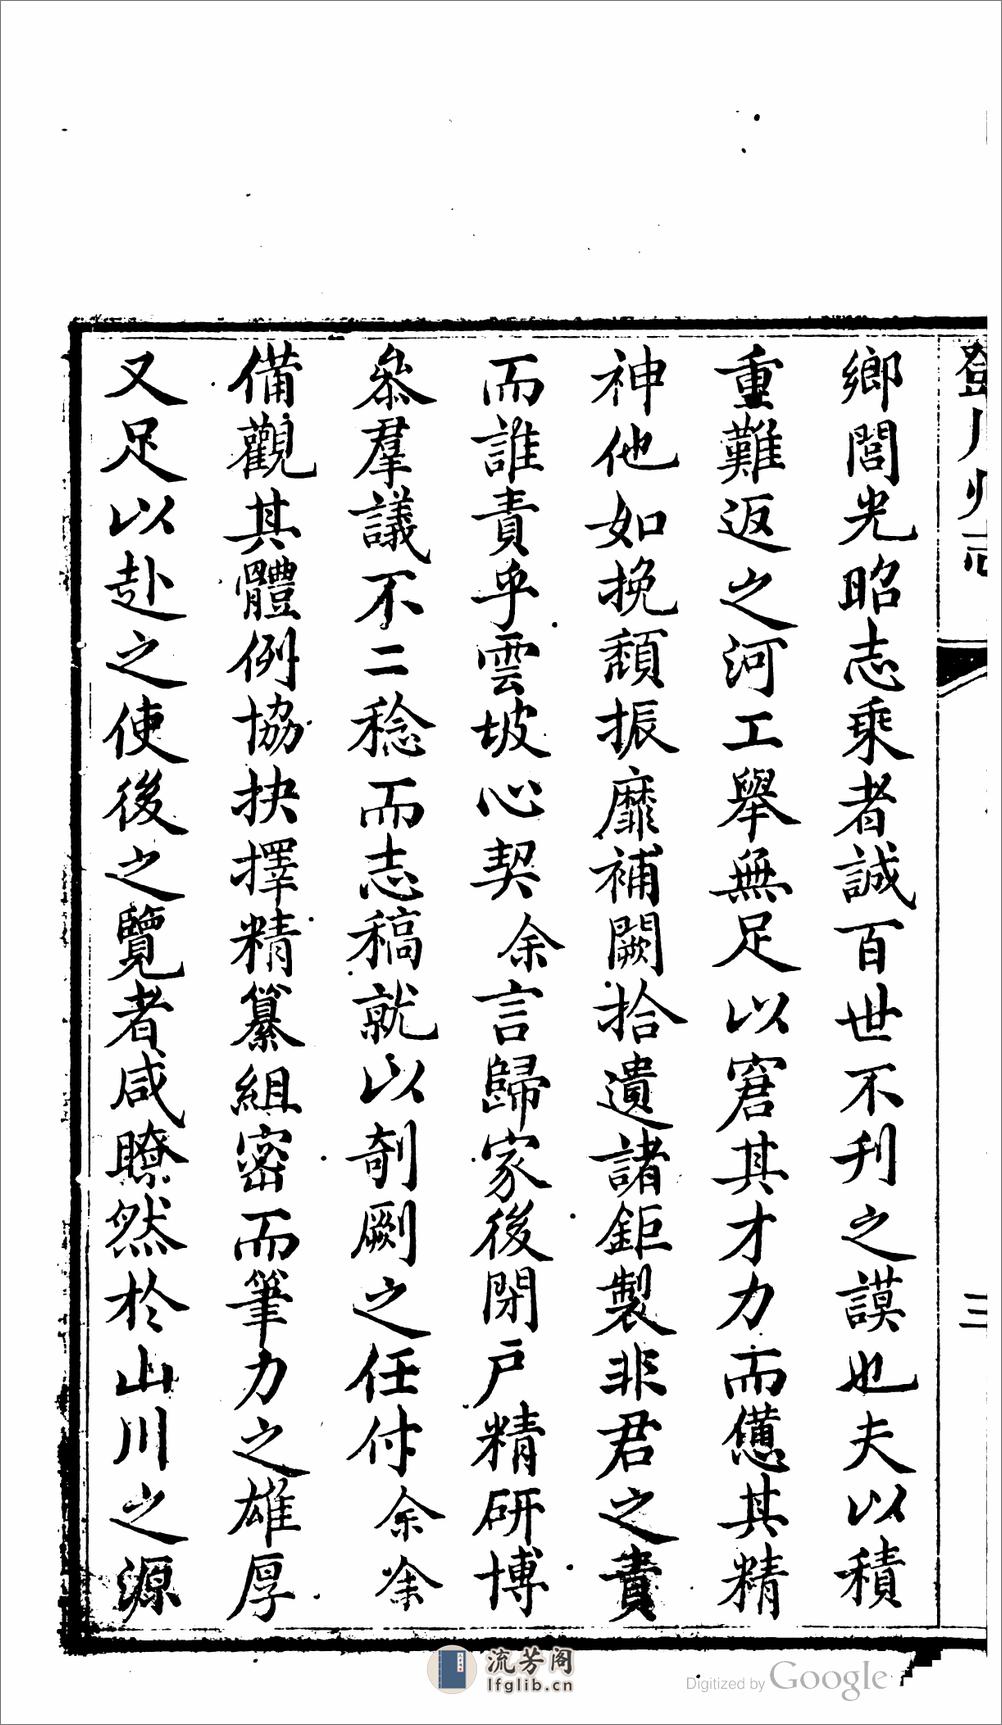 鄉閭光昭志乘者誠百世不刋之謨也夫以積
重難返之河工舉無足以窘其才力而憊其精
神他如挽頹振靡補闕拾遺諸鉅製非君之責
而誰責乎雲坡心契余言歸家後閉戶精研博
叅羣議不二稔而志稿就以剞劂之任付余余
備觀其體例協抉擇精纂組密而筆力之雄厚
又足以赴之使後之覽者咸瞭然於山川之源
三
流芳阁
lfglib.cn
Digitized by Google